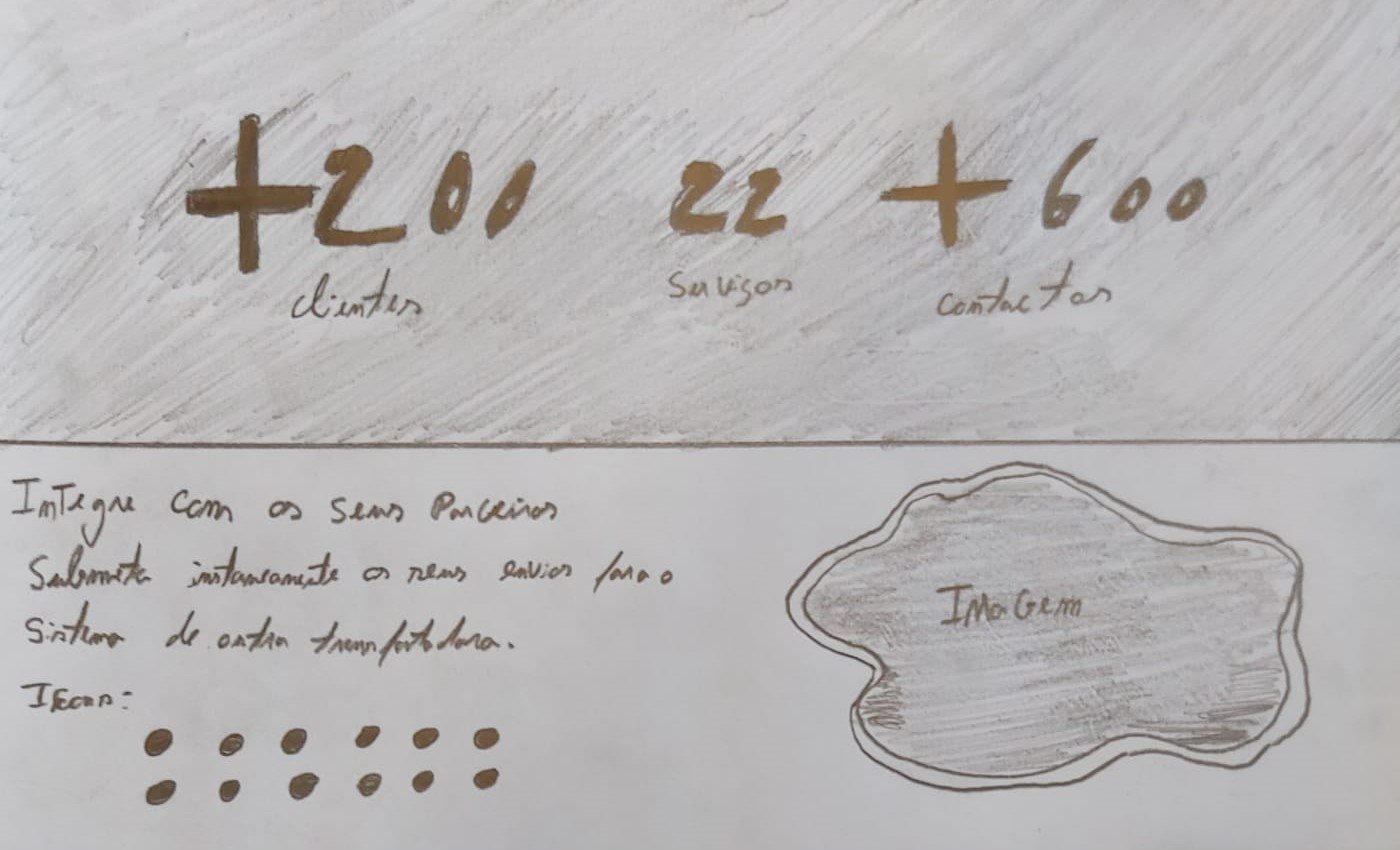 +200 22 +600
clientes Serviços contactos
Integre com os seus Parceiros
Submeta instantaneamente os seus envios para o
Sistema de outra transportadora.
Icons:
Imagem